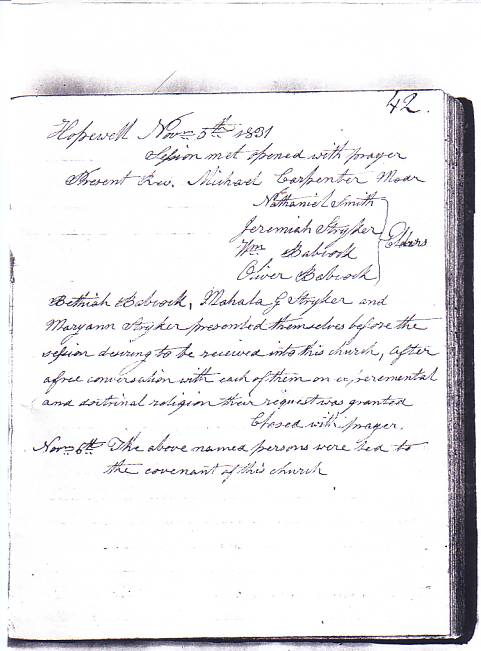 42.
Hopewell Novr 5th 1831
Session met opened with prayer
Present Rev. Michael Carpenter Modr
Nathaniel Smith
Jeremiah Stryker
Wm Babcock
Oliver Babcock
Elders
Bethiah Babcock, Mahala G Stryker and
Maryann Stryker presented themselves before the
session desiring to be received into this church, After
a free conversation with each of them on experemental
and doctrinal religion their request was granted
Closed with prayer.
Novr 6th The above named persons were led to
the covenant of this church